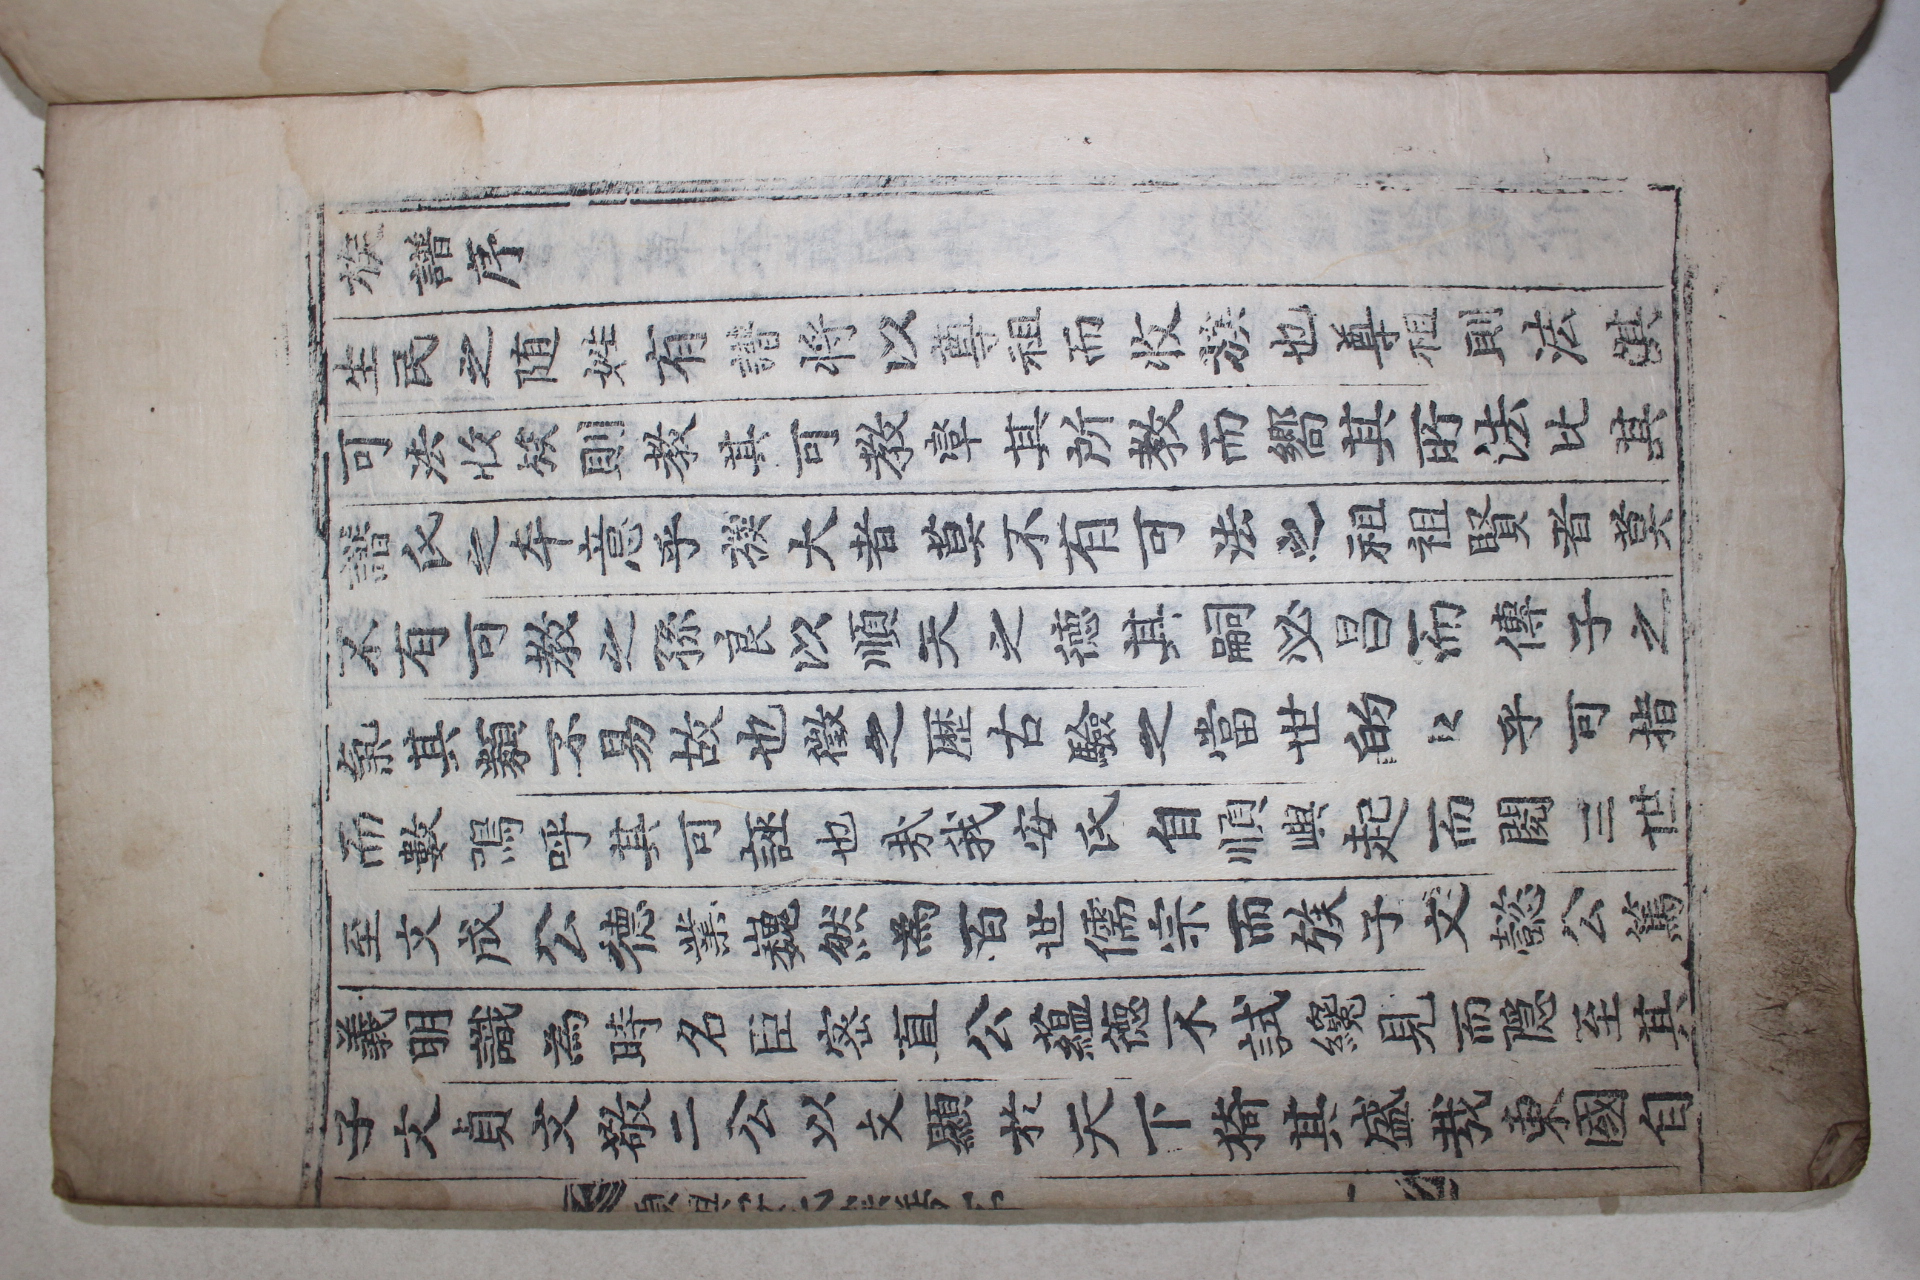 族譜序
生民之随姓有譜將以尊祖而收族也尊祖則法其
可法收族則教其可教率其所教而嚮其所法比其
譜氏之本意乎族大者莫不有可法之祖祖賢者莫
不有可教之孫良以順天之德其嗣必昌而傳子之
氣其類不易故也徵之歷古驗之當世的〻乎可指
而數嗚呼其可誣也哉我安氏自順興起而閱三世
至文成公德業巍然為百世儒宗而族子文懿公篤
義明識為時名臣密直公蘊德不試纔見而隱至其
子文貞文敬二公以文顯於天下猗其盛哉東國自
順興安氏族譜序
一